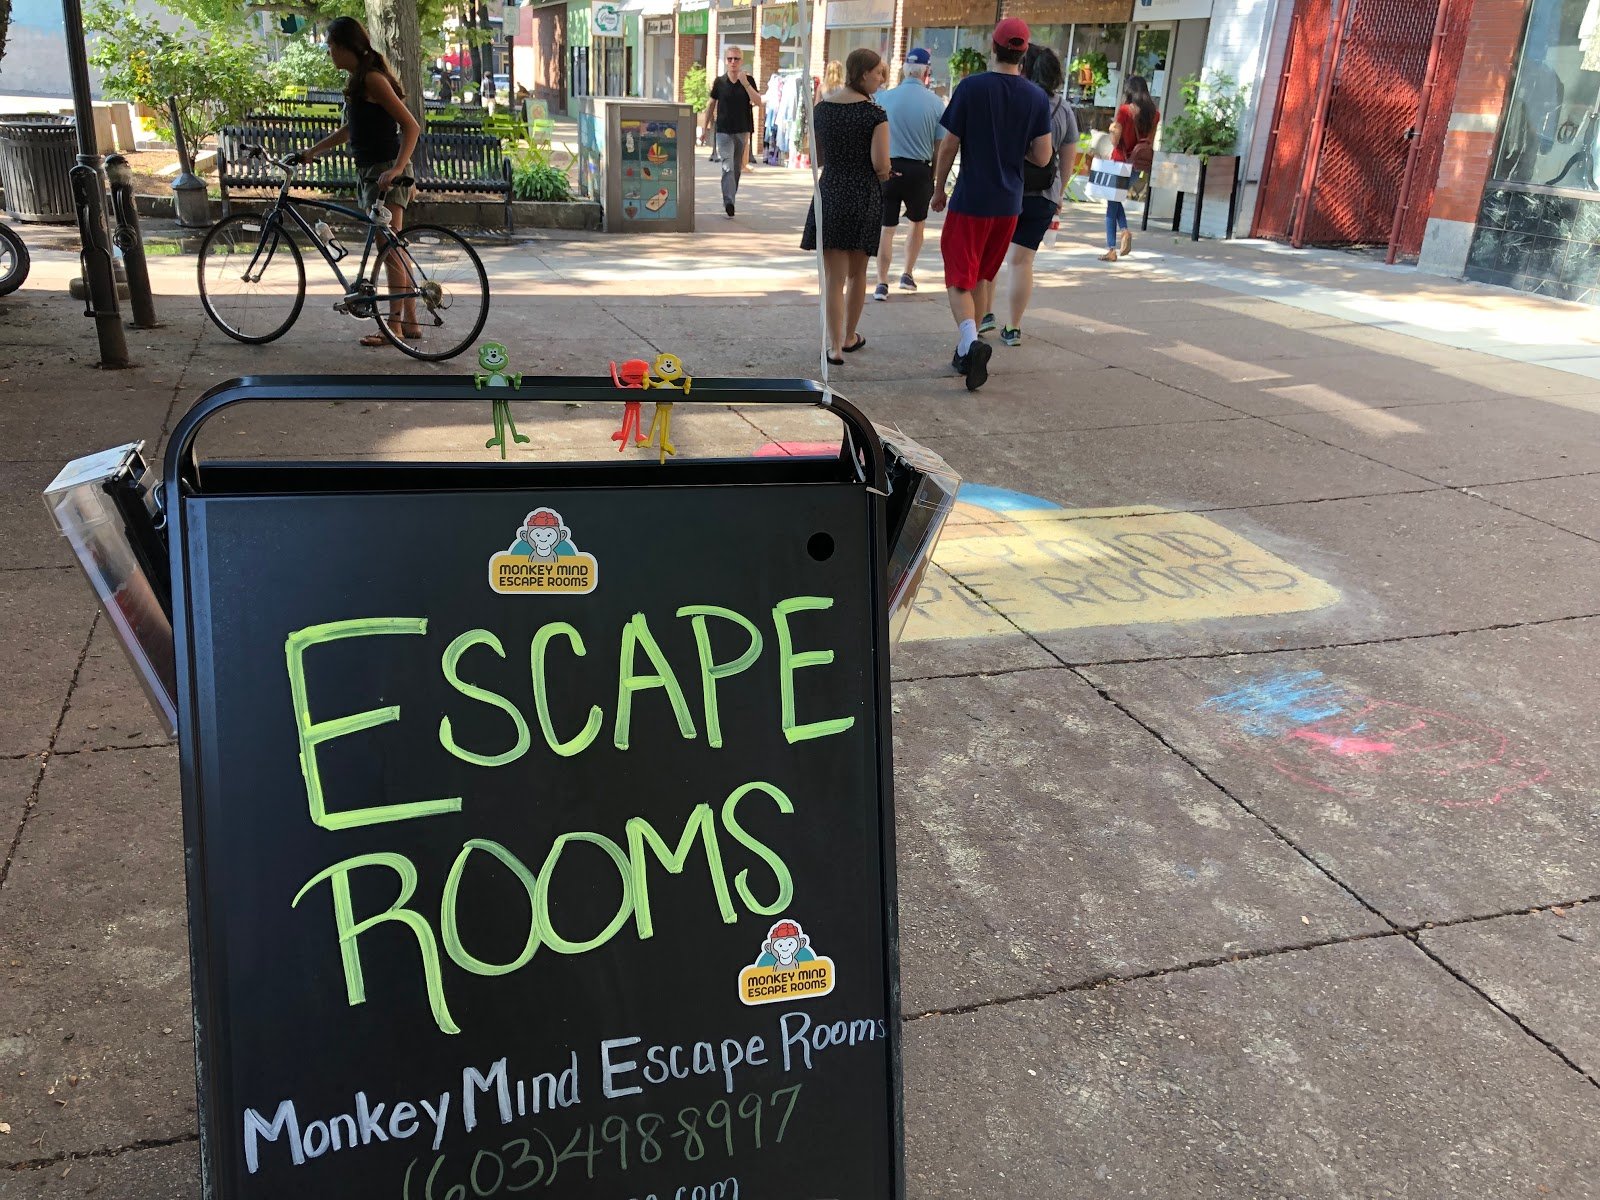 MONKEY MIND
ESCAPE ROOMS
ESCAPE
ROOMS
MONKEY MIND
ESCAPE ROOMS
Monkey Mind Escape Rooms
(603)498-8997
.com
MIND
ROOMS